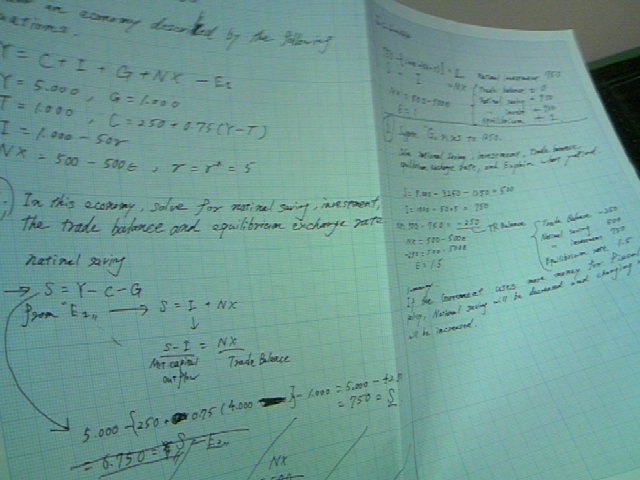 an economy described by the following
Y = C + I + G + NX — E1
Y = 5.000 , G = 1.000
T = 1.000 , C = 250 + 0.75 (Y-T)
I = 1.000 - 50r
NX = 500 - 500ε , r = r* = 5
In this economy, solve for natinal saving, investment,
the trade balance and equilibrium exchange rate
natinal saving
→ S = Y - C - G
from "E1" → S = I + NX
↓
S-I = NX
Net capital Trade Balance
out flow
5.000 - {250 + 0.75 (4.000
- 1.000 = 5.000 - 425
= 750 = S
NX
Natinal investment 750
Trade balance = 0
Natinal saving = 750
NX = 500 - 500ε
Suppose G rises to 1250.
natinal saving, investment, trade balance,
exchange rate, and explain what you find
S = 5.000 - 3250 - 1250 = 500
I = 1000 - 50×5 = 750
NX = 500 - 750 = -250 → TR Balance
NX = 500 - 500ε
-250 = 500 - 500ε
ε = 1.5
Trade Balance -250
Natinal saving 500
" investment 750
Equilibrium rate 1.5
If the Government uses more money for fiscal
policy, National saving will be decreased and changing
will be increased.